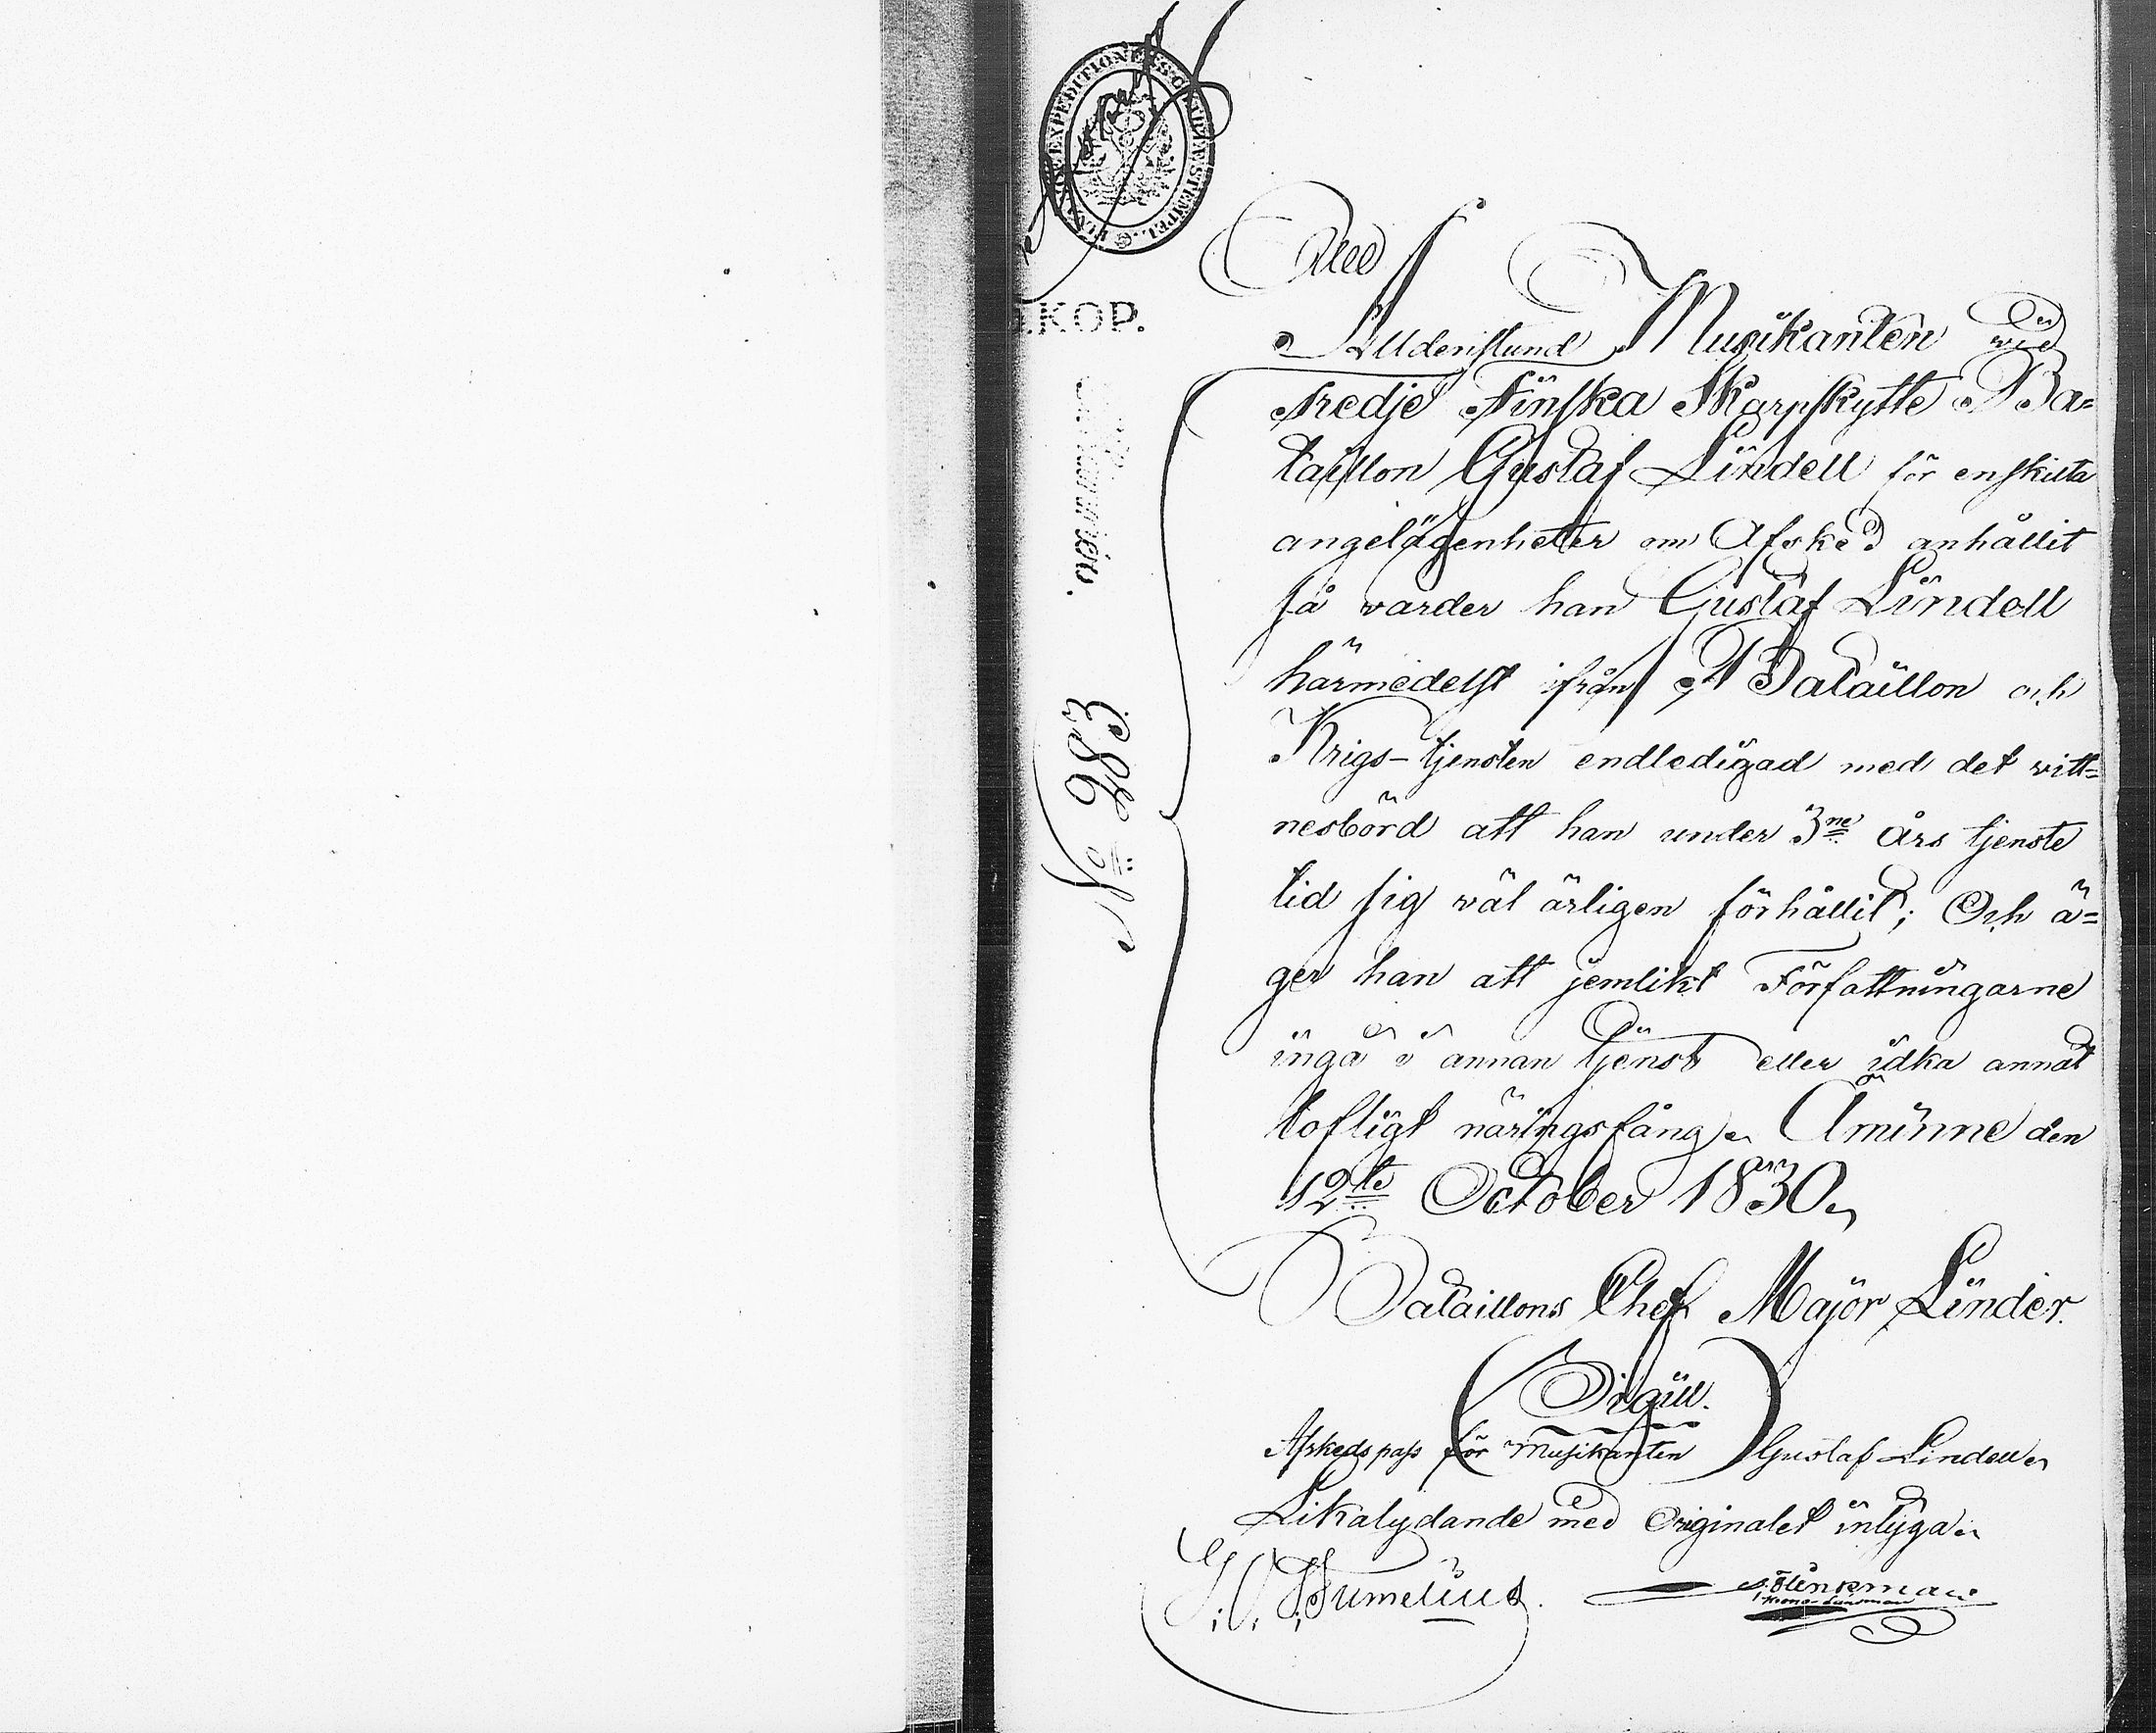 KOP.
Musikanten wid
tredje Finska Skarpskytte Ba=
taillon Gustaf Lindell för enskilta
angelägenheter om Afsked anhållit
så warder han Gustaf Lindell
härmedelst ifrån Bataillon och
Krigs-tjensten endledigad med det witt=
nesbörd att han under 3ne års tjenste
tid sig wäl ärligen förhållit; Och ä=
ger han att jemlikt Författningarne
ingå i annan tjenst eller idka annat
lofligt näringsfång. Åminne den
12te October 1830.
Bataillons Chef Major Linder.
(Sigill.)
Afskedspass för Musikanten Gustaf Lindell.
Likalydande med Originalet intyga.
Krono Länsman
No 283